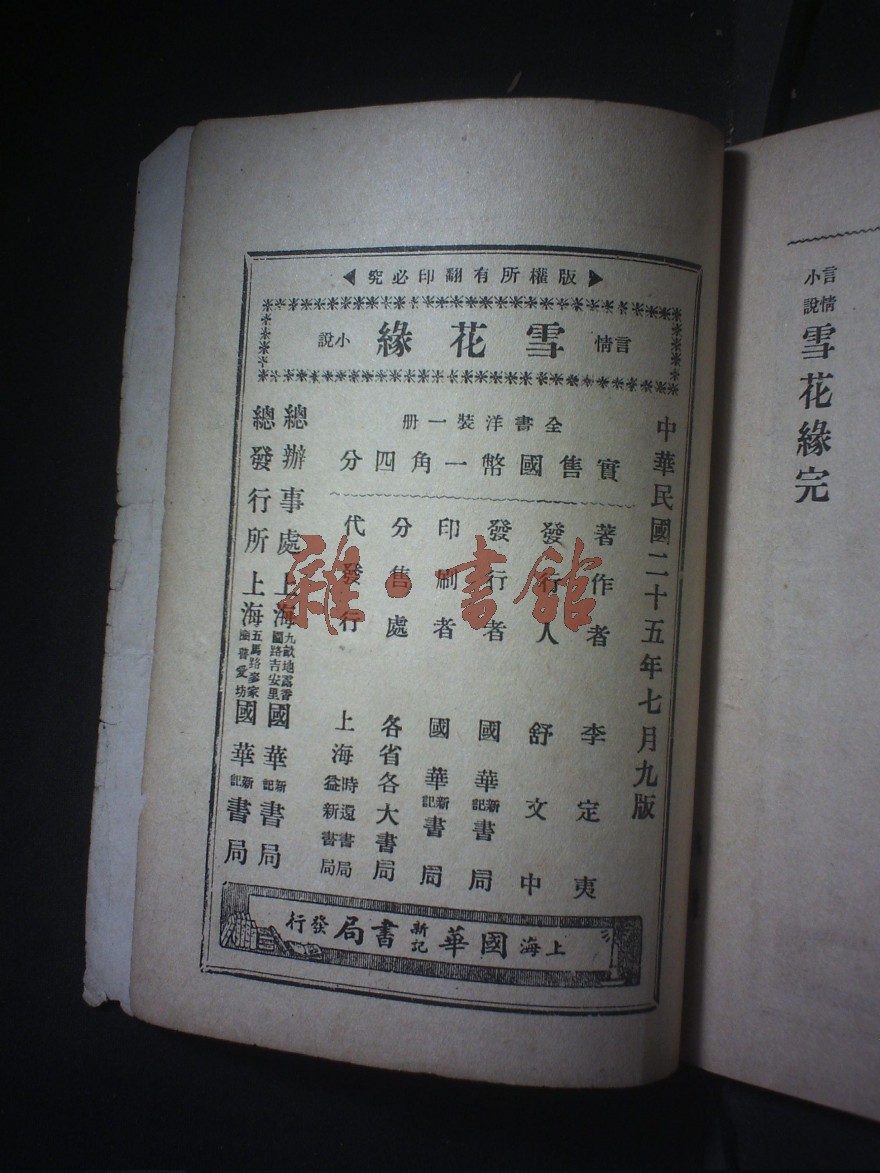 言情
小說
雪花緣完
版權所有翻印必究
言情 雪花緣 小說
中華民國二十五年七月九版
全書洋裝一册
實售國幣一角四分
著作者 李定夷
發行人 舒文中
發行者 國華新記書局
印刷者 國華新記書局
分售處 各省各大書局
代發行 上海時還書局 益新書局
總辦事處 上海九畝地露香園路吉安里國華新記書局
總發行所 上海五馬路麥家圈普愛坊國華新記書局
上海國華新記書局發行
雜·書館